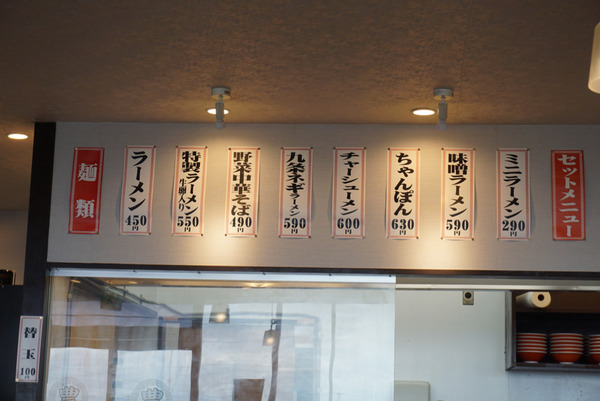 麺類
ラーメン
450円
特製ラーメン
550円
野菜中華そば
490円
九条ネギラーメン
590円
チャーシューメン
600円
ちゃんぽん
630円
味噌ラーメン
590円
ミニラーメン
290円
セットメニュー
替玉
100円